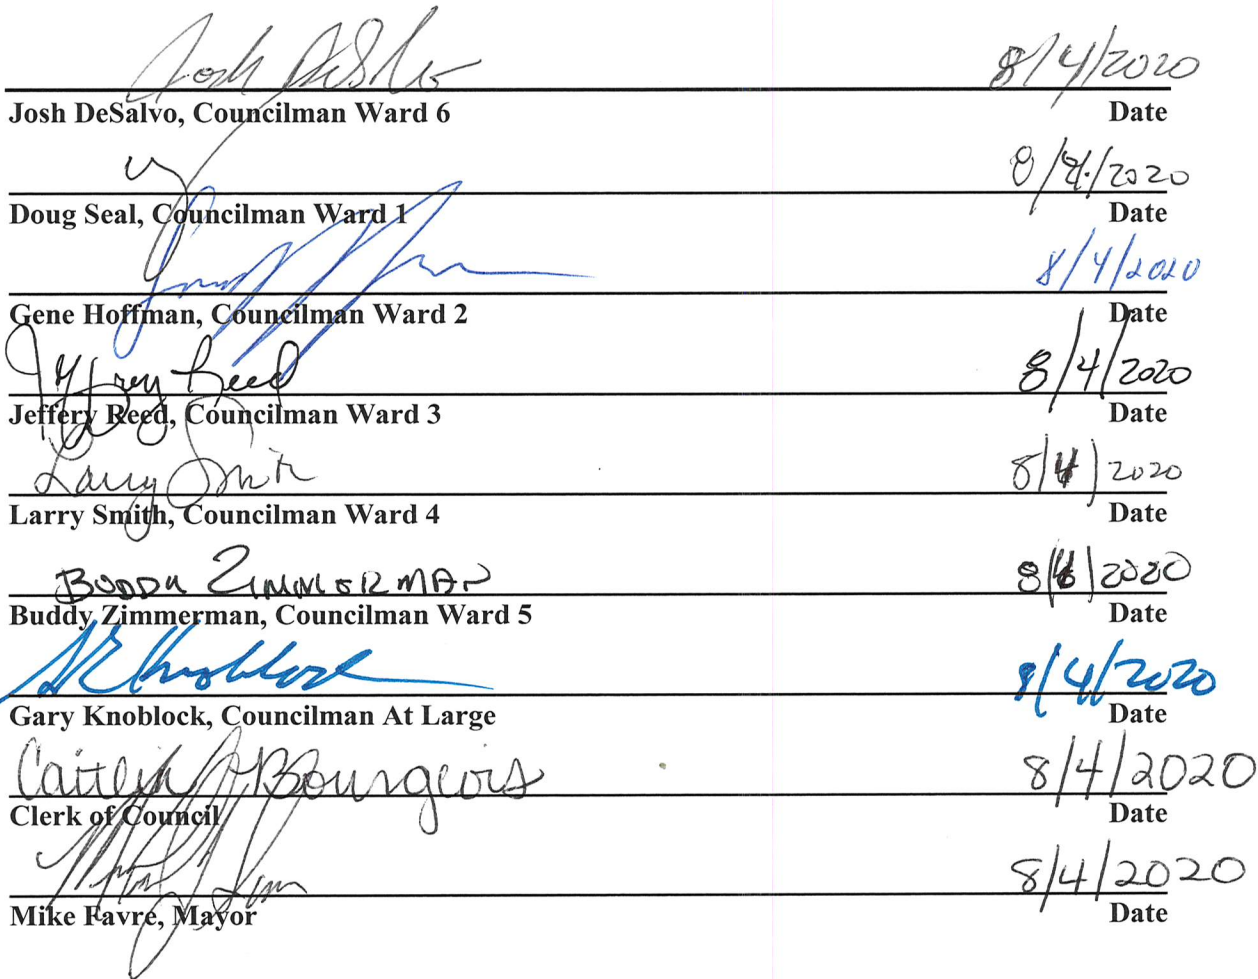 Josh DeSalvo 8/4/2020
Josh DeSalvo, Councilman Ward 6 Date
8/4/2020
Doug Seal, Councilman Ward 1 Date
8/4/2020
Gene Hoffman, Councilman Ward 2 Date
Jeffrey Reed 8/4/2020
Jeffery Reed, Councilman Ward 3 Date
Larry Smith 8/4/2020
Larry Smith, Councilman Ward 4 Date
BUDDY ZIMMERMAN 8/4/2020
Buddy Zimmerman, Councilman Ward 5 Date
Knoblock 8/4/2020
Gary Knoblock, Councilman At Large Date
Caitlin Bourgeois 8/4/2020
Clerk of Council Date
8/4/2020
Mike Favre, Mayor Date